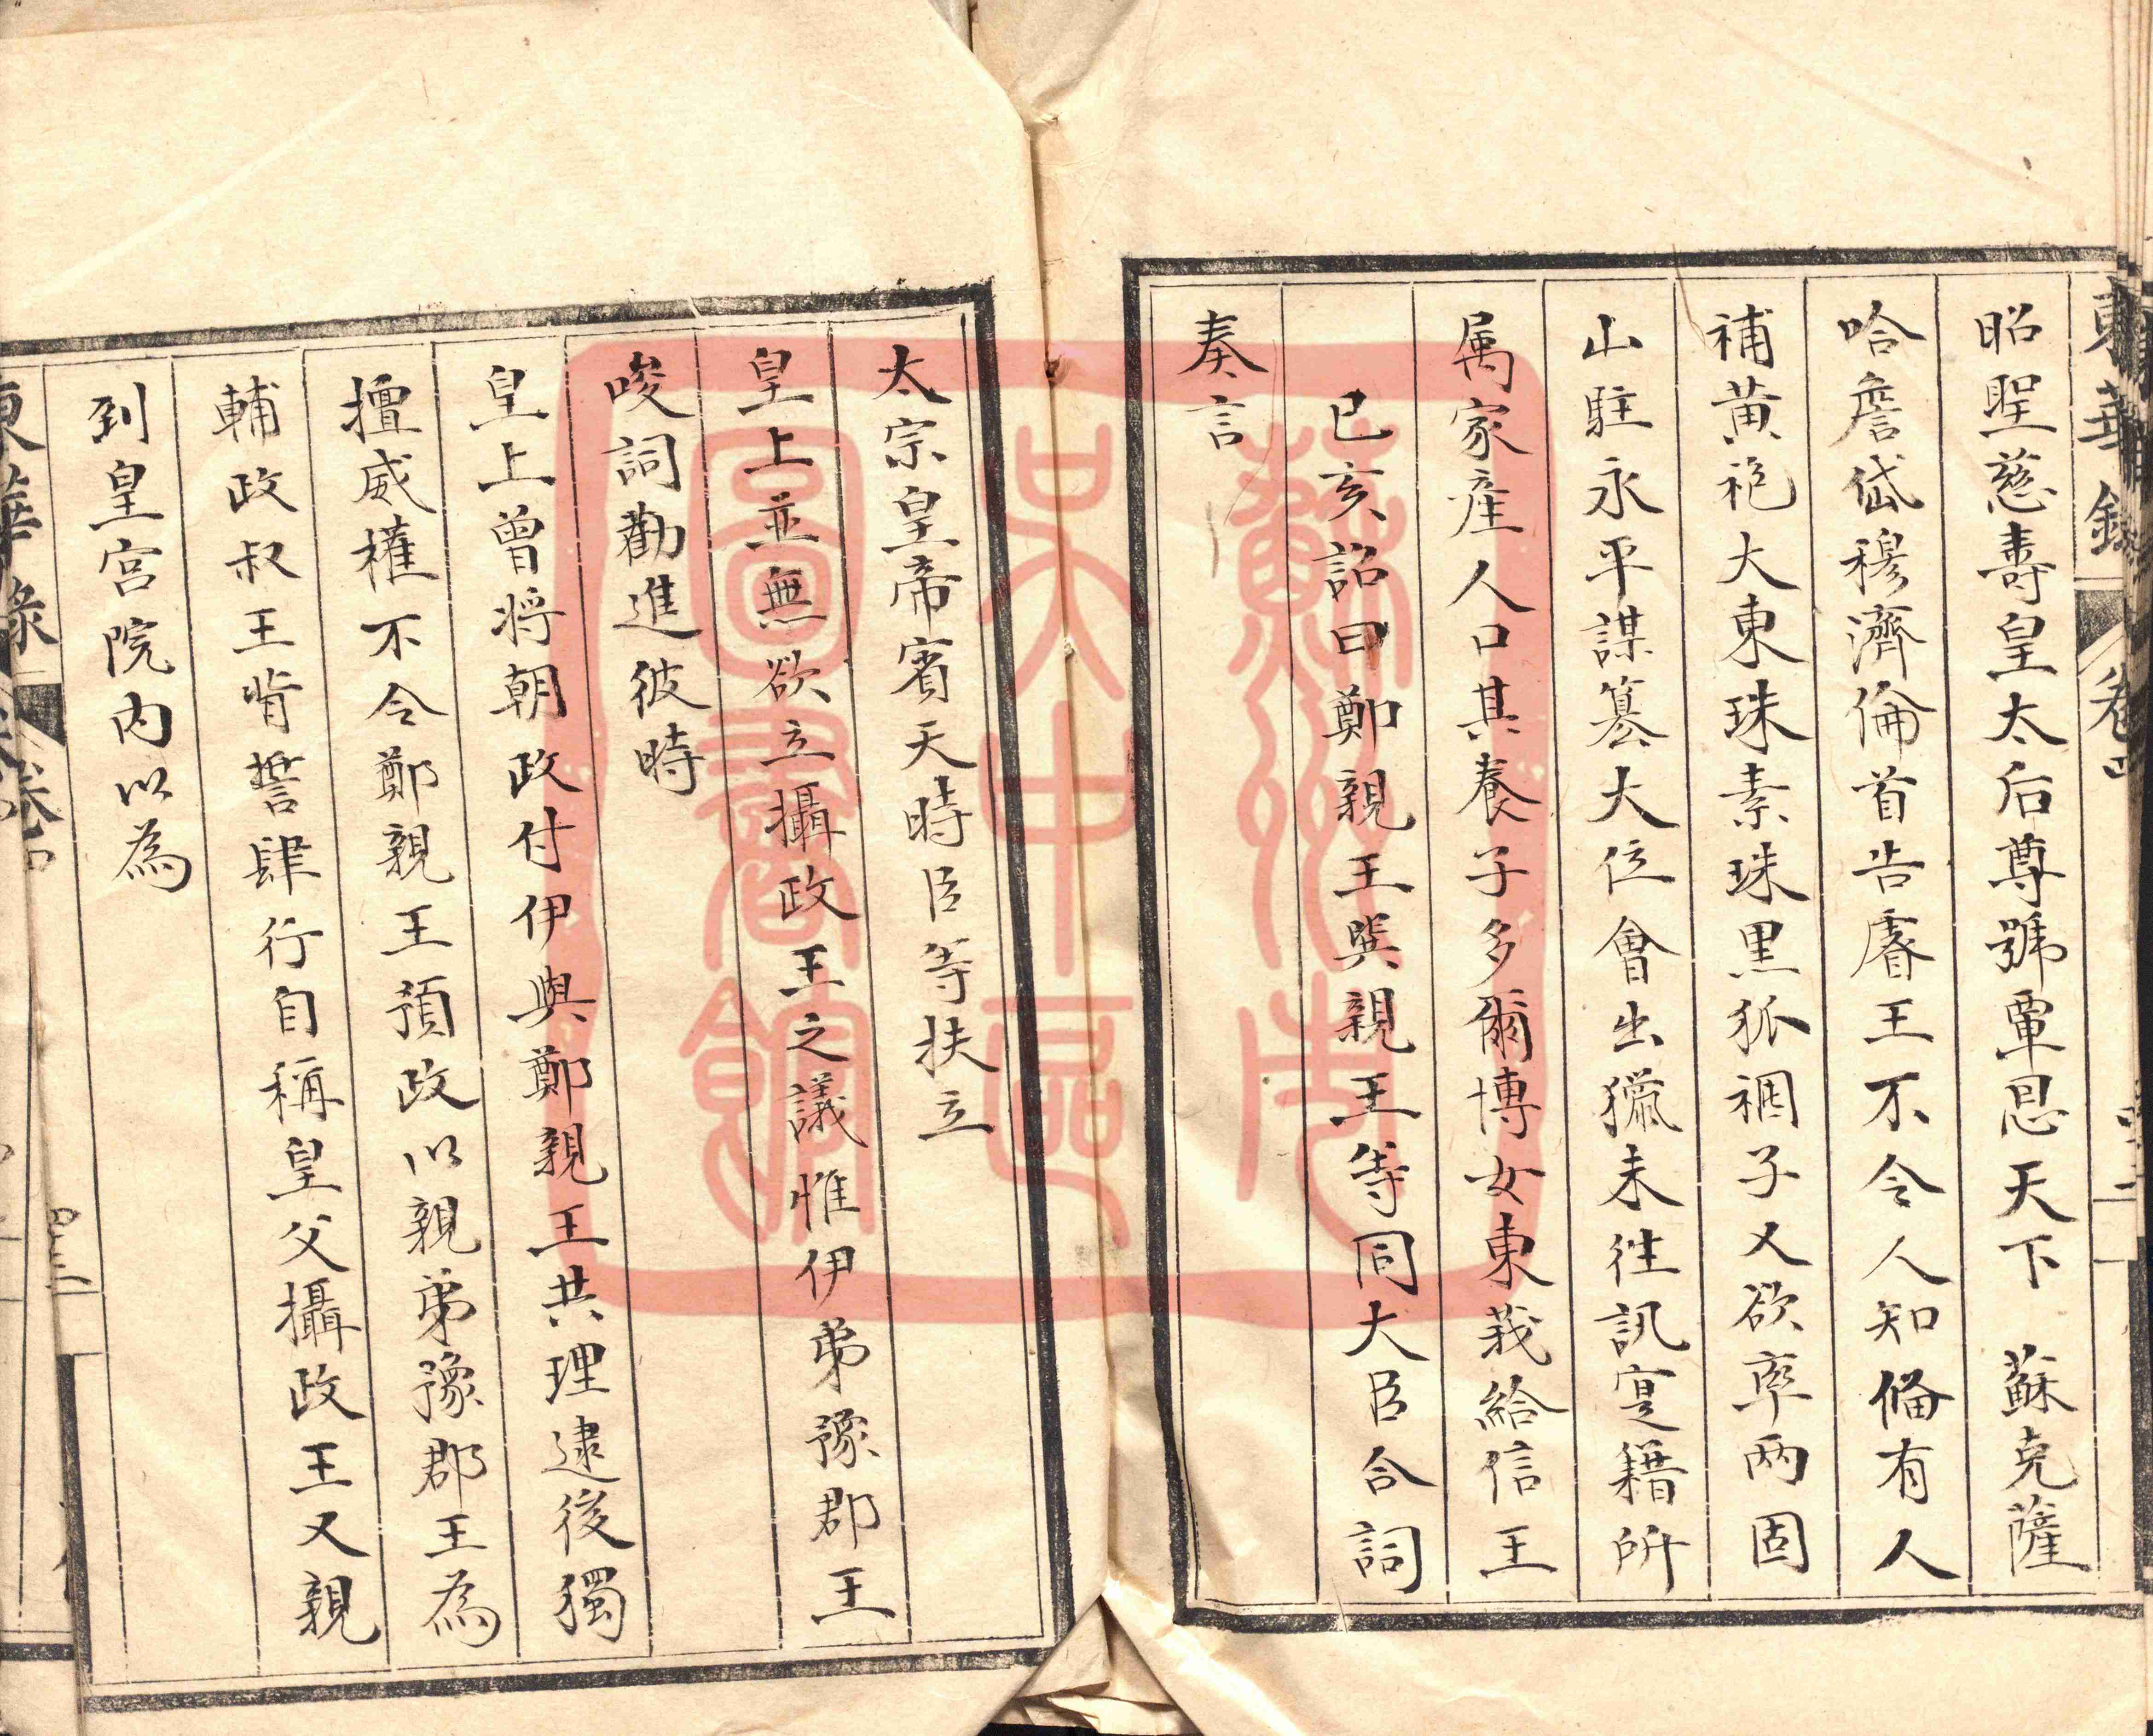 東華錄 卷四
昭聖慈壽皇太后尊號覃恩天下 蘇克薩
哈詹岱穆濟倫首告睿王不令人知偹有人
補黄袍大東珠素珠黑狐裀子又欲率两固
山駐永平謀篡大位會出獵未徃訊寔籍所
属家產人口其養子多爾博女東莪給信王
已亥詔曰鄭親王巽親王等同大臣合詞
奏言
太宗皇帝賓天時臣等扶立
皇上並無欲立攝政王之議惟伊弟豫郡王
唆詞勸進彼時
皇上曾将朝政付伊與鄭親王共理逮後獨
擅威權不令鄭親王預政以親弟豫郡王為
輔政叔王背誓肆行自稱皇父攝政王又親
到皇宫院内以為
東華錄 卷四
蘇州市
吳中區
圖書館